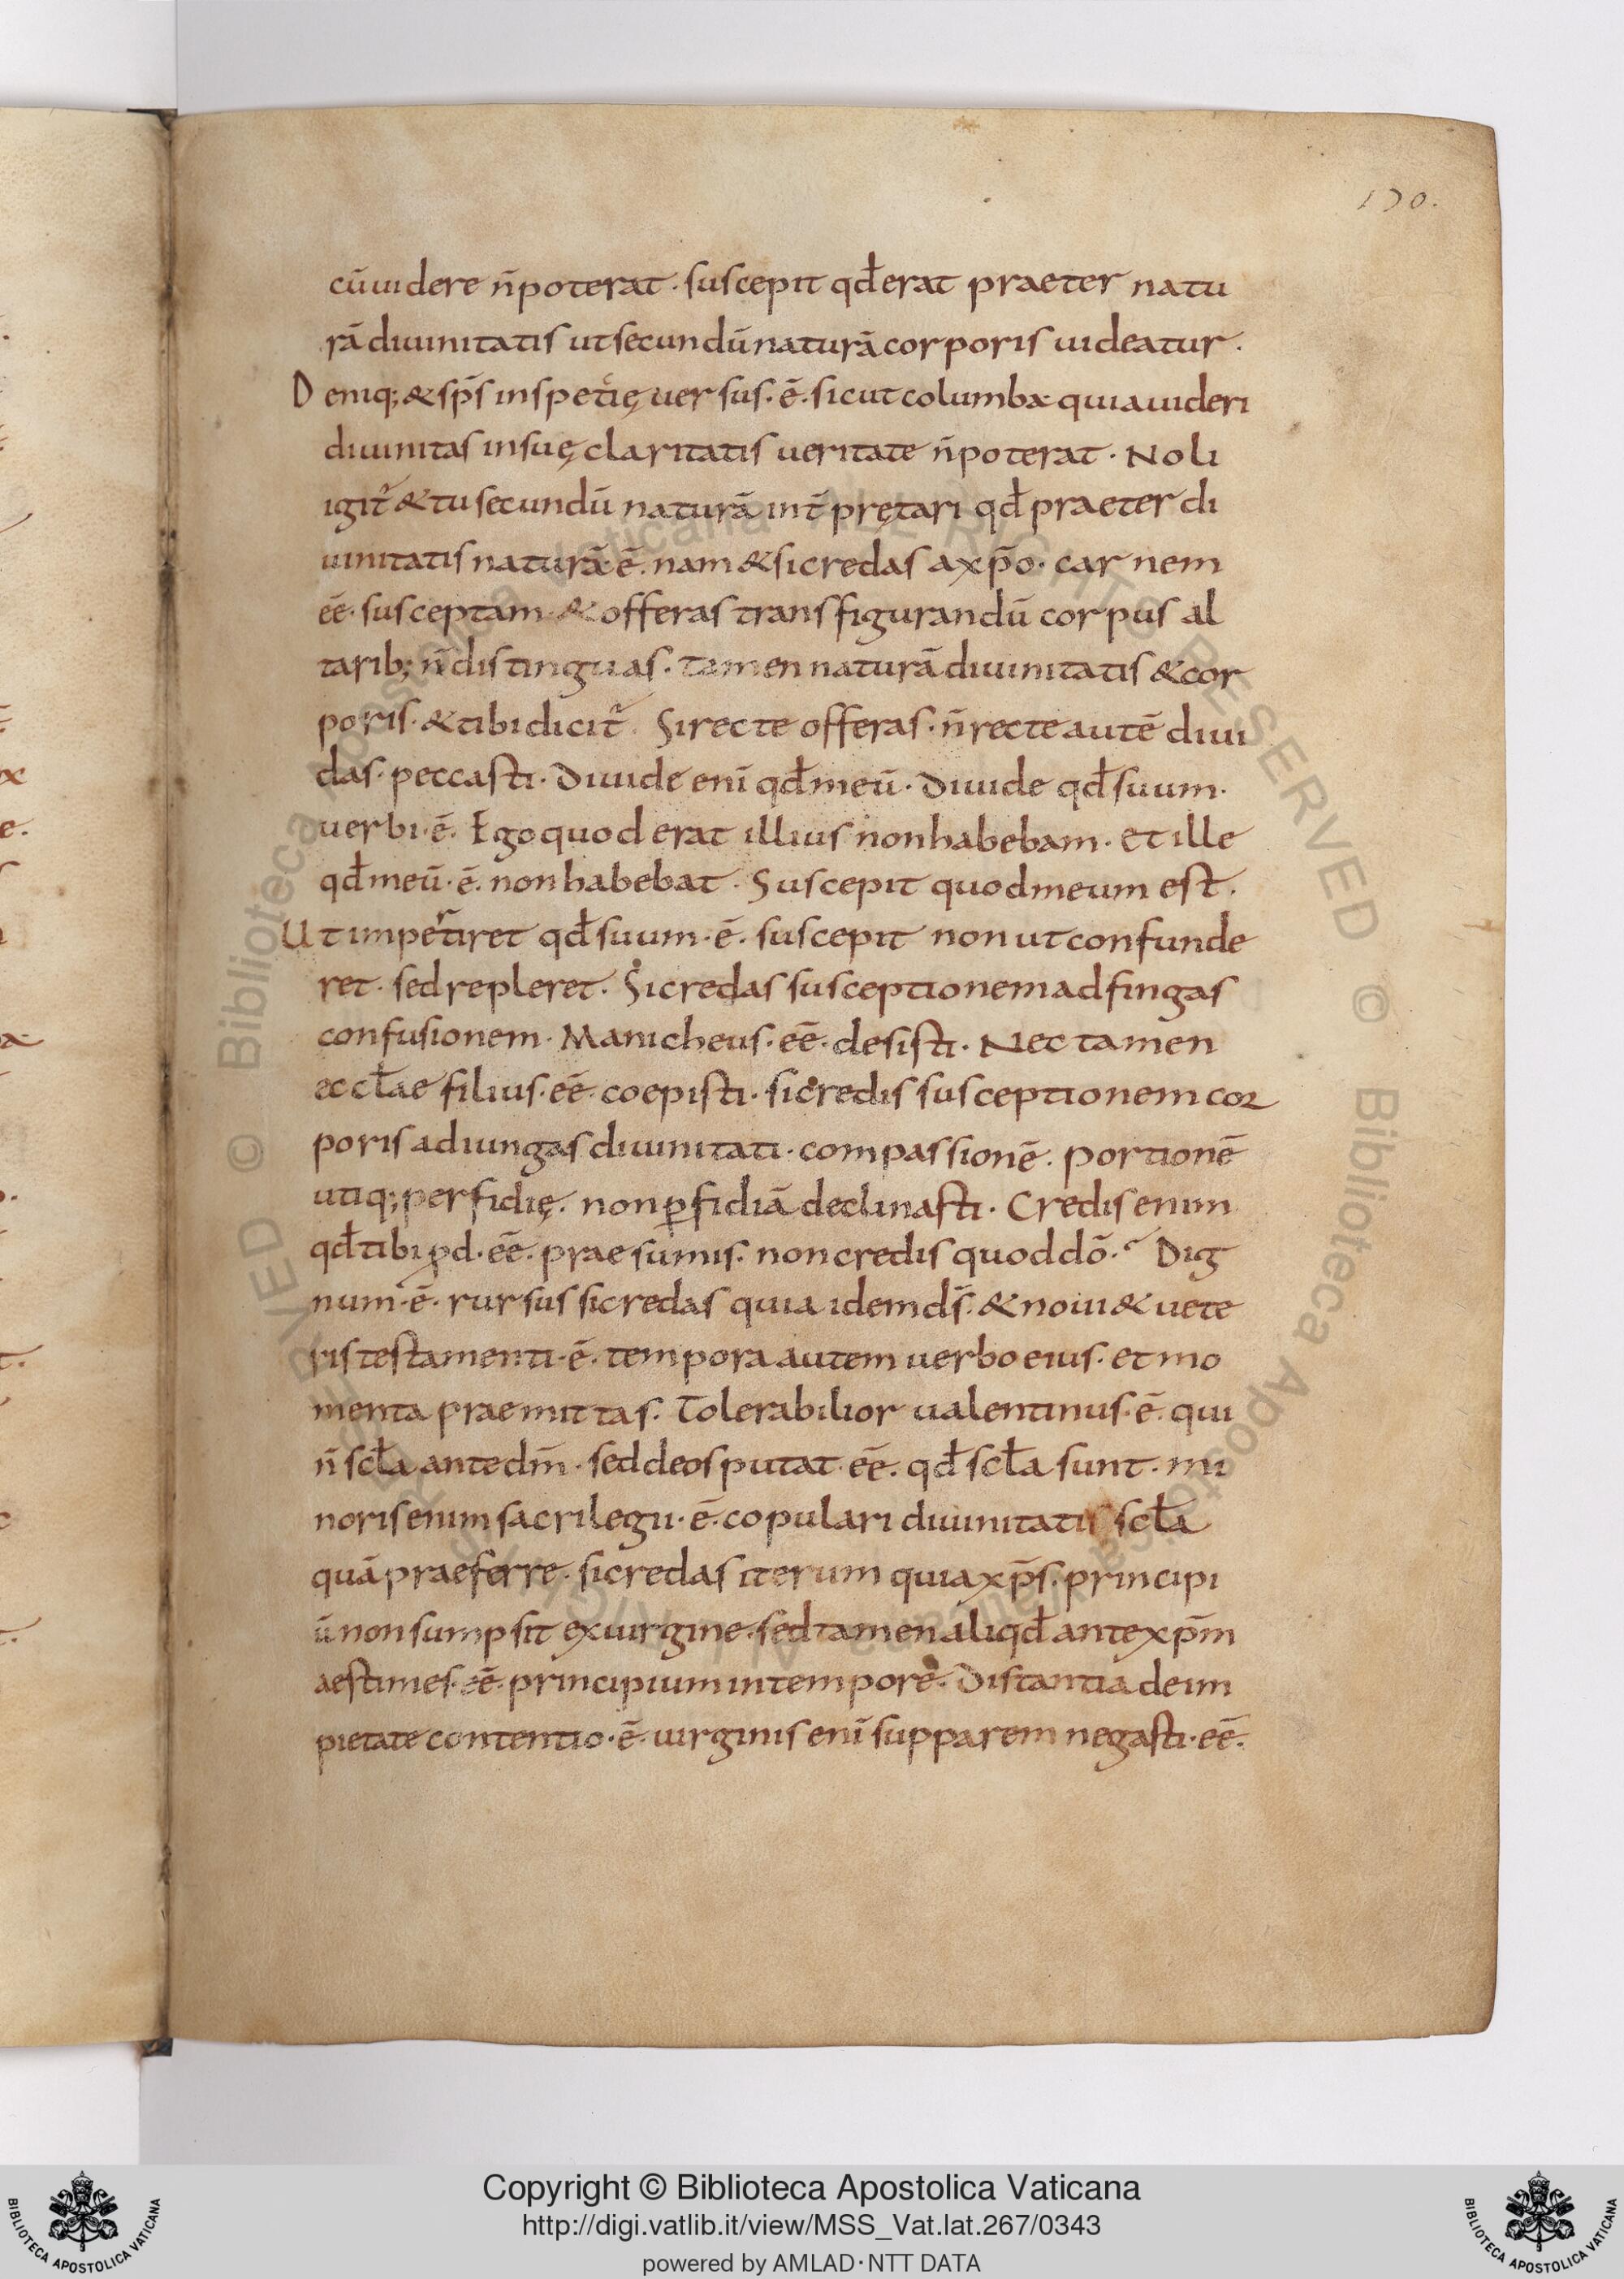 170.
cū uidere n̄ poterat · suscepit qđ erat praeter natu
rā diuinitatis ut secundū naturā corporis uideatur ·
Deniq; & sp̄s in spetię uersus · ē · sicut columba · quia uideri
diuinitas in suę claritatis ueritate n̄ poterat · Noli
igit᷑ & tu secundū naturā int̄ prętari qđ praeter di
uinitatis naturā · ē · nam & si credas a xp̄o · carnem
eē · susceptam · & offeras transfigurandū corpus al
tarib; n̄ distinguas · tamen naturā diuinitatis & cor
poris · & tibi dicit᷑ · Si recte offeras · n̄ recte autē diui
das · peccasti · Diuide eni̅ qđ meū · Diuide qđ suum ·
uerbi · ē · Ego quod erat illius non habebam · et ille
qđ meū · ē · non habebat · Suscepit quod meum est ·
Ut impertiret qđ suum · ē · suscepit non ut confunde
ret · sed repleret · Si credas susceptionem adfingas
confusionem · Manicheus · eē · desisti · Nec tamen
ecclae filius · eē · coepisti · si credis susceptionem cor
poris adiungas diuinitati · compassionē · portionē
utiq; perfidię · non ꝑfidiā declinasti · Credis enim
qđ tibi ꝓd · eē · praesumis · non credis quod dō · Dig
num · ē · rursus si credas quia idem ds̄ · & noui & uete
ris testamenti · ē · tempora autem uerbo eius · et mo
menta praemittas · Tolerabilior ualentinus · ē · qui
n̄ scła ante dm̄ · sed deos putat · eē · qđ scła sunt · mi
noris enim sacrilegii · ē · copulari diuinitatis scła
quā praeferre · si credas iterum quia xp̄s · principi
ū non sumpsit ex uirgine · sed tamen aliqđ ante xp̄m
aestimes · eē · principium in tempore · Distantia de im
pietate contentio · ē · uirginis eni̅ supparem negasti · eē ·
© Biblioteca Apostolica Vaticana ALL RIGHTS RESERVED
Copyright © Biblioteca Apostolica Vaticana
http://digi.vatlib.it/view/MSS_Vat.lat.267/0343
powered by AMLAD · NTT DATA
BIBLIOTECA APOSTOLICA VATICANA
BIBLIOTECA APOSTOLICA VATICANA